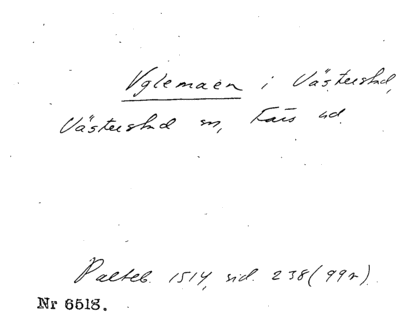 Vglemaen i Västerstad,
Västerstad sn, Färs hd.
Palteb. 1514, sid. 238 (99r)
Nr 6513.